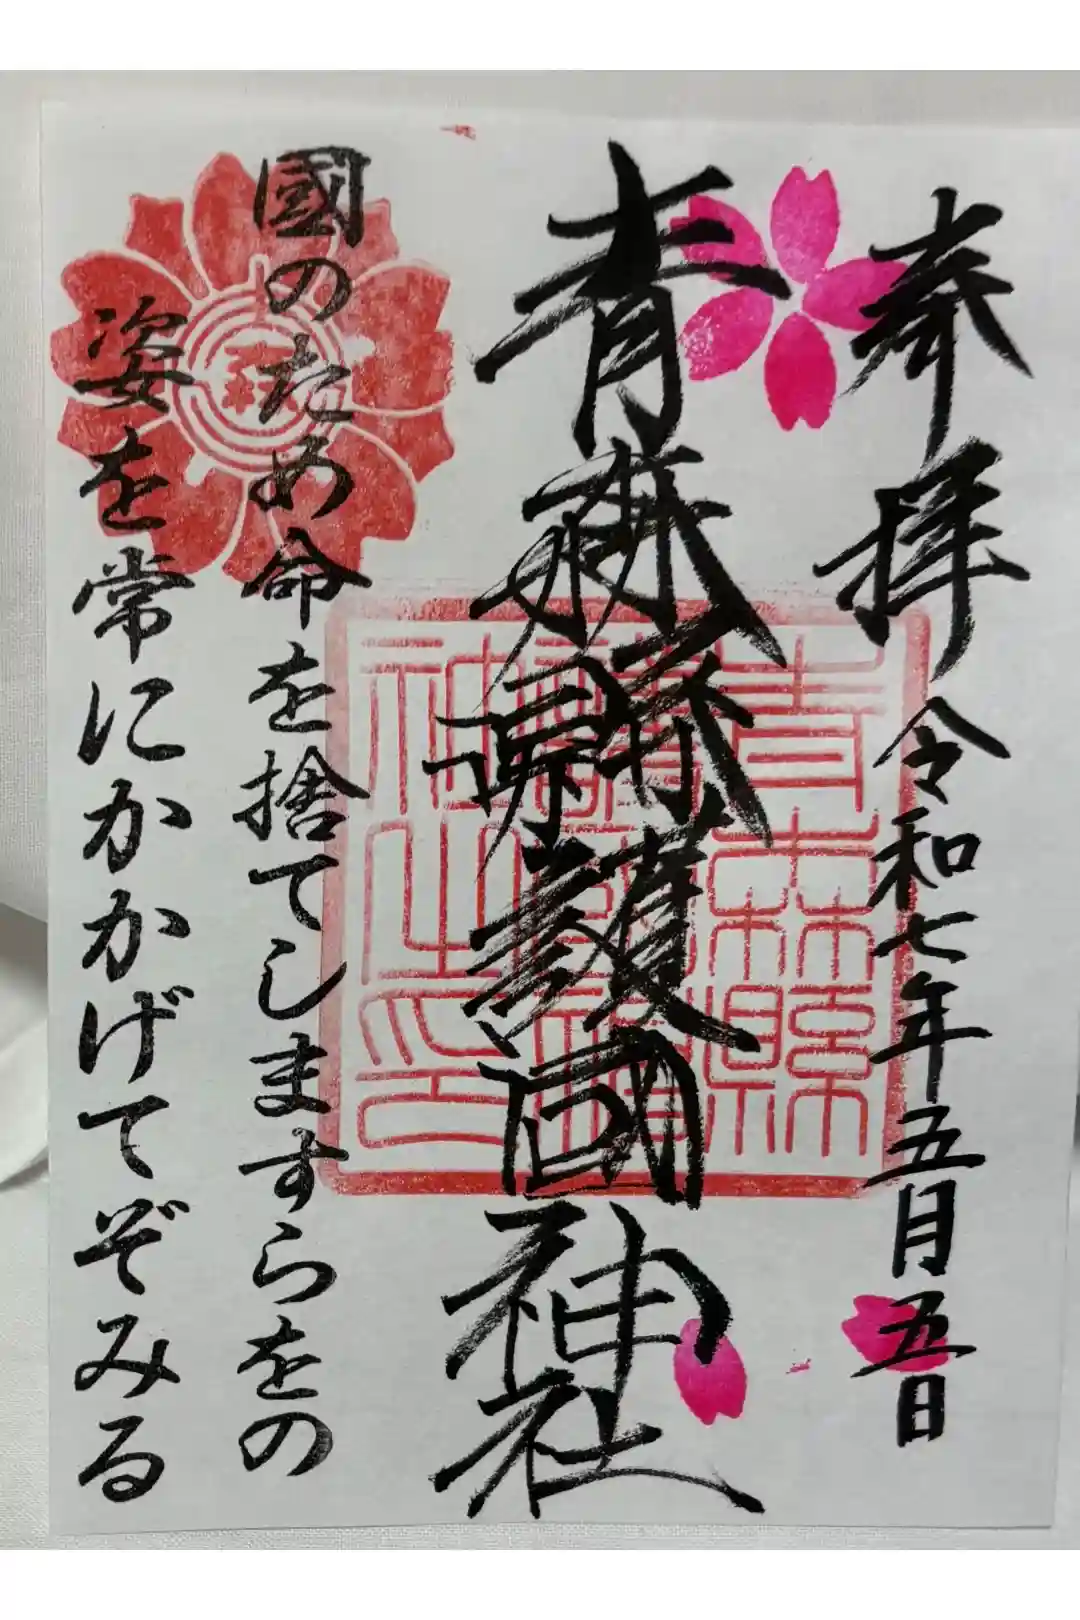 奉拝
令和七年五月五日
青森県護國神社
國のため命を捨てしますらをの
姿を常にかかげてぞみる
青森縣護國神社之印